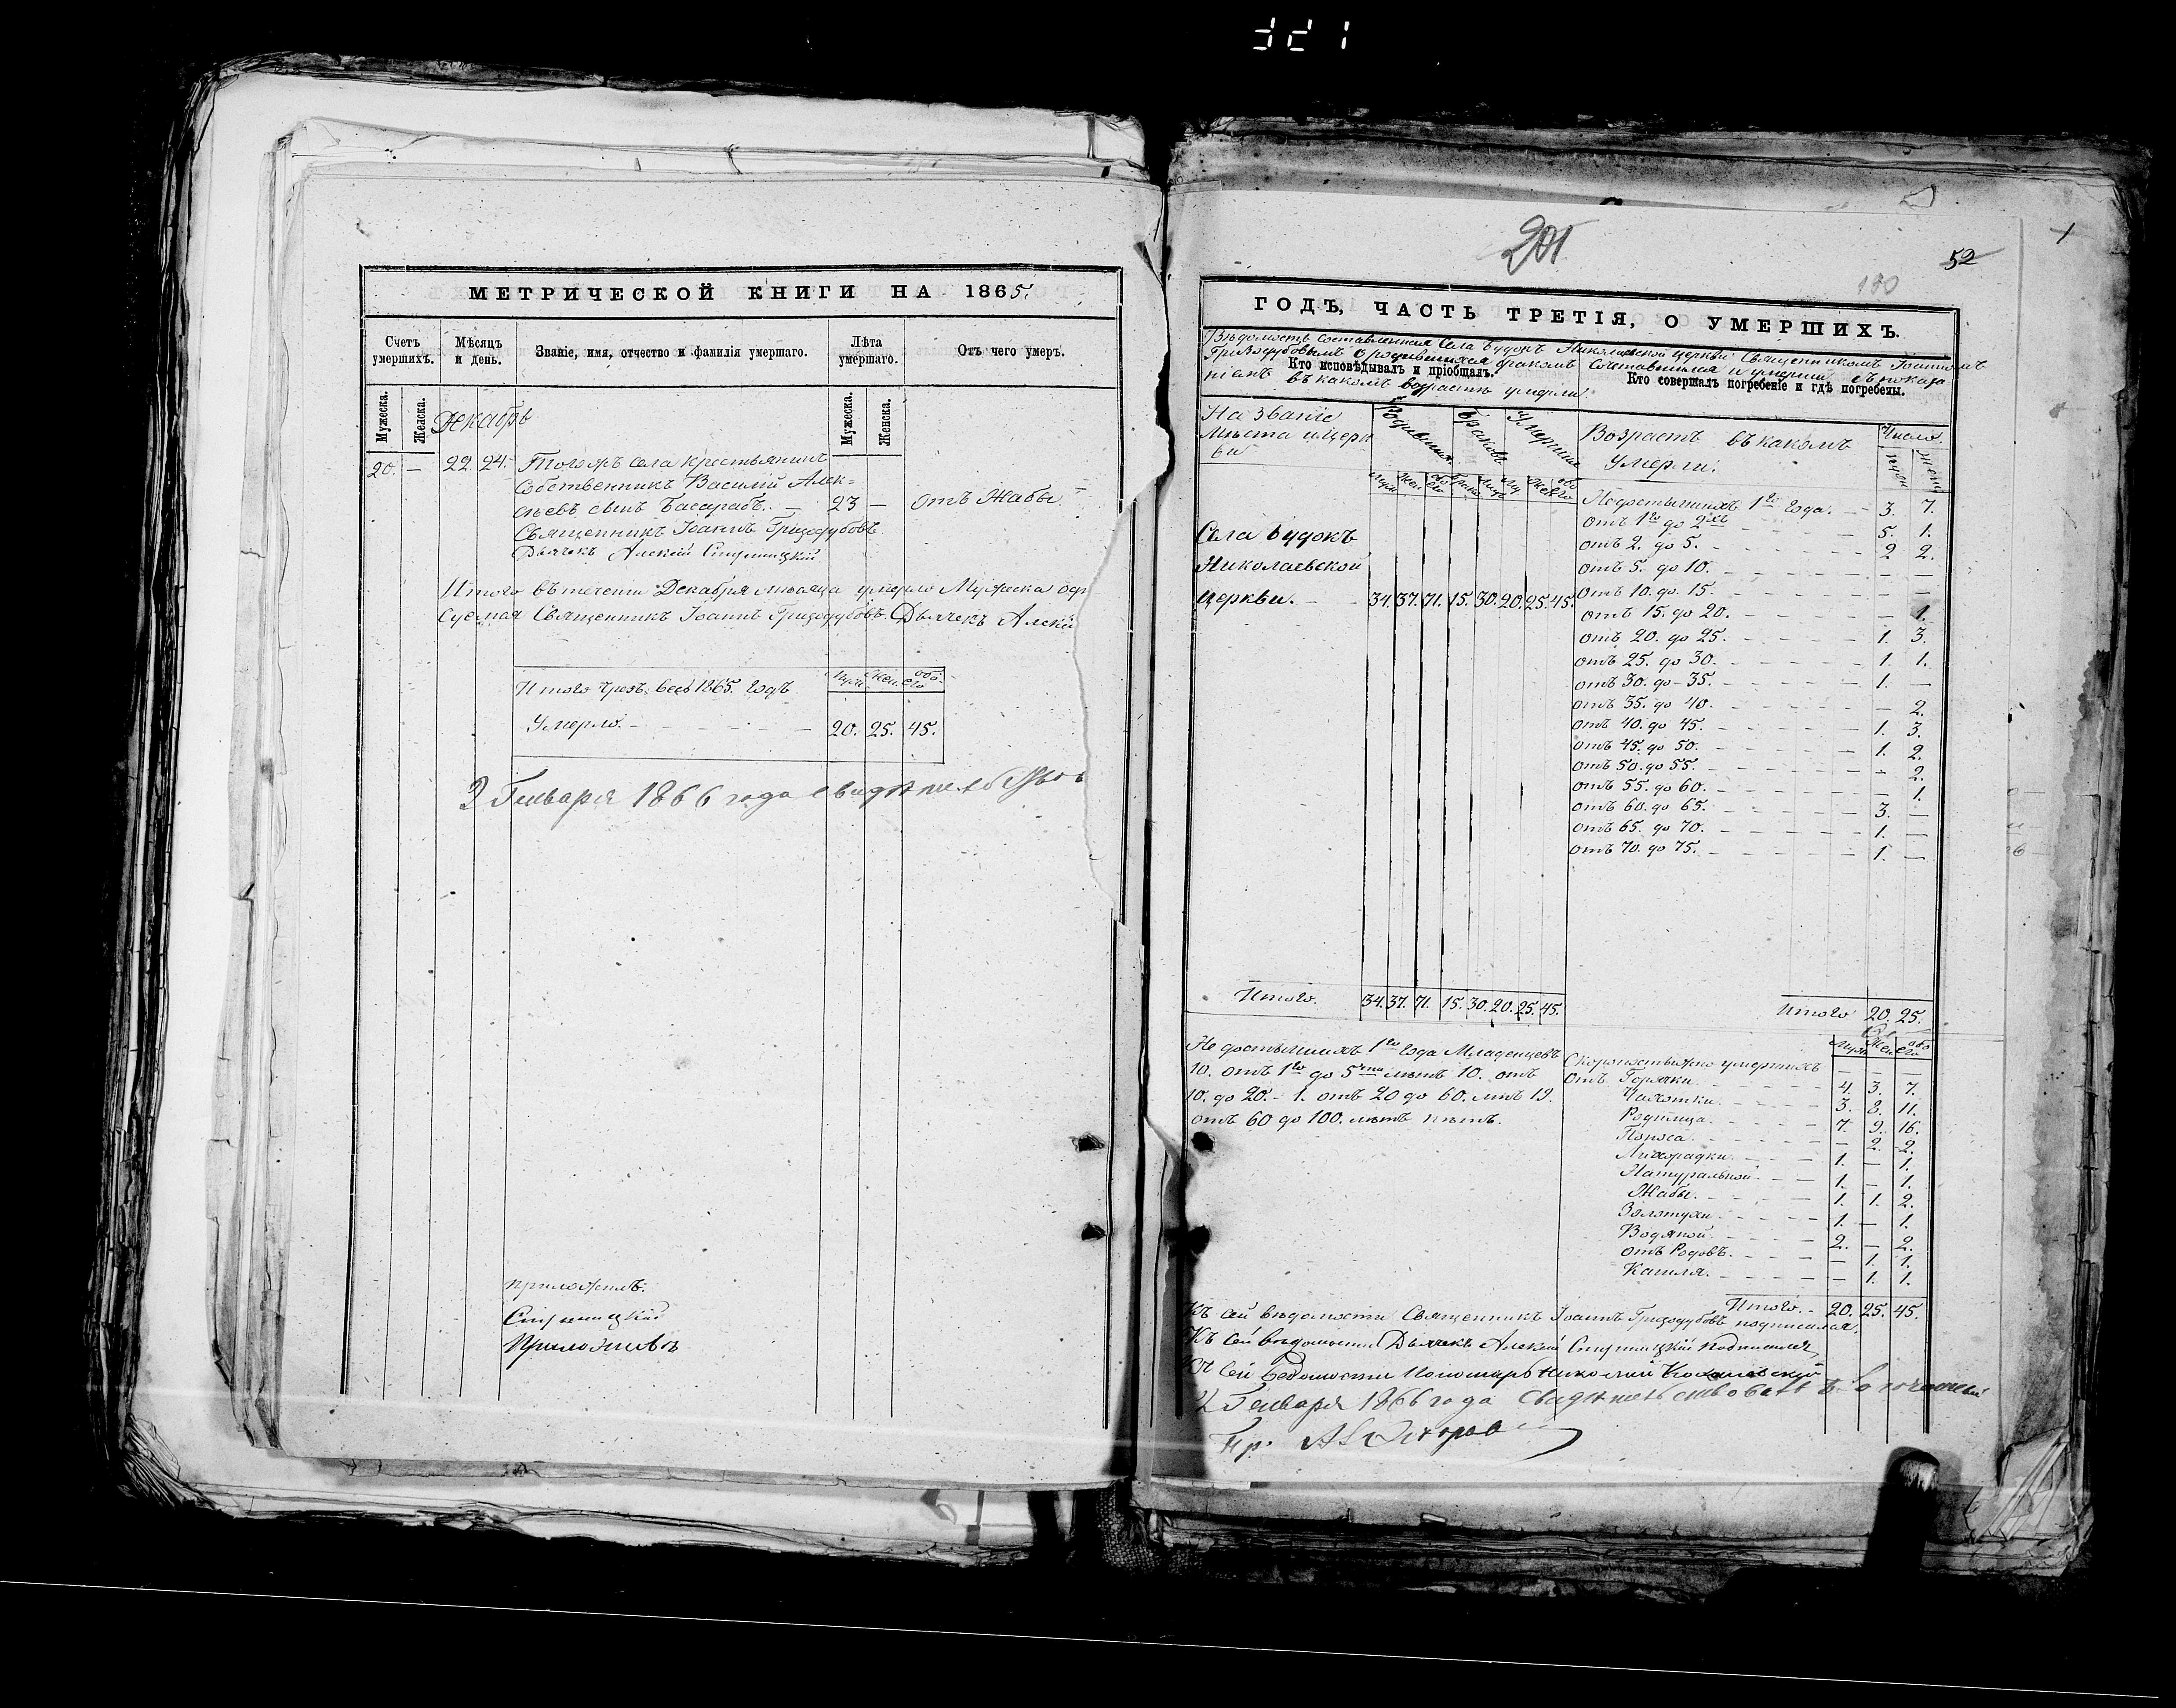 321
МЕТРИЧЕСКОЙ КНИГИ НА 1865.
Счетъ умершихъ.
Мѣсяцъ и день.
Званіе, имя, отчество и фамилія умершаго.
Лѣта умершаго.
Отъ чего умеръ.
Мужеска.
Женска.
Мужеска.
Женска.
Декабрь
20. — 22 24. Тогожъ села крестьянинъ
Собственникъ Василій Алек=
сѣевъ сынъ Басарабъ. — 23 — отъ Жабы
Священникъ Іоаннъ Гризодубовъ
Дьячекъ Алексій
Итого въ теченіи Декабря мѣсяца умерло Мужеска
Священникъ Іоаннъ Гризодубовъ. Дьячекъ Алексій
Итого чрезъ весь 1865. Годъ Муж. Жен. обо его
Умерло. — 20. 25. 45.
2 Генваря 1866 года
приложилъ.
201
52
150
ГОДЪ, ЧАСТЬ ТРЕТІЯ, О УМЕРШИХЪ.
Вѣдомость составленная Села Будокъ Николаевской церкви Священникомъ Іоанномъ
Гризодубовымъ о родившихся бракомъ сочетавшихся и умершихъ съ показа
Кто исповѣдывалъ и пріобщалъ.
Кто совершалъ погребеніе и гдѣ погребены.
ніемъ въ какомъ возрастѣ умерли.
Названіе Мѣста и церкви
Родившихся
Браковъ
Умершихъ
Возрастъ въ какомъ умерли.
Число.
Недостигшихъ 1го Года. — 3. 7.
отъ 1го до 2хъ — 5. 1.
отъ 2. до 5. — 2 2.
отъ 5. до 10. — — —
отъ 10. до 15. — — —
отъ 15. до 20. — — 1.
отъ 20. до 25. — 1. 3.
отъ 25. до 30. — 1. 1.
отъ 30. до 35. — 1. —
отъ 35. до 40. — — 2.
отъ 40. до 45. — 1. 3.
отъ 45. до 50. — 1. 2.
отъ 50. до 55. — — 2.
отъ 55. до 60. — — 1.
отъ 60. до 65. — 3. —
отъ 65. до 70. — 1. —
отъ 70. до 75. — 1. —
Села Будокъ
Николаевской
церкви. — 34. 37. 71. 15. 30. 20. 25. 45.
Итого. 34. 37. 71. 15. 30. 20. 25. 45.
Итого 20. 25.
Недостигшихъ 1го Года Младенцевъ
10. отъ 1го до 5ти лѣтъ 10. отъ
10. до 20. — 1. отъ 20 до 60. лѣтъ 19.
отъ 60 до 100. лѣтъ нѣтъ.
Муж. Жен. обо его
Скоропостижно умершихъ — — —
отъ Горячки 4. 3. 7.
Чахотки 3. 8. 11.
Родимца 7. 9. 16.
Поноса — 2. 2.
Лихорадки 1. — 1.
Натуральной 1. — 1.
Жабы. 1. 1. 2.
Золотухи 1. — 1.
Водяной 2. — 2.
отъ Родовъ. — 1. 1.
Кашля. — 1. 1.
Итого. — 20. 25. 45.
Къ сей вѣдомости Священникъ Іоаннъ Гризодубовъ подписался.
Къ сей вѣдомости Дьячекъ Алексій подписался
Къ сей вѣдомости Пономарь Николай
2 Генваря 1866 года свидѣтельствовалъ